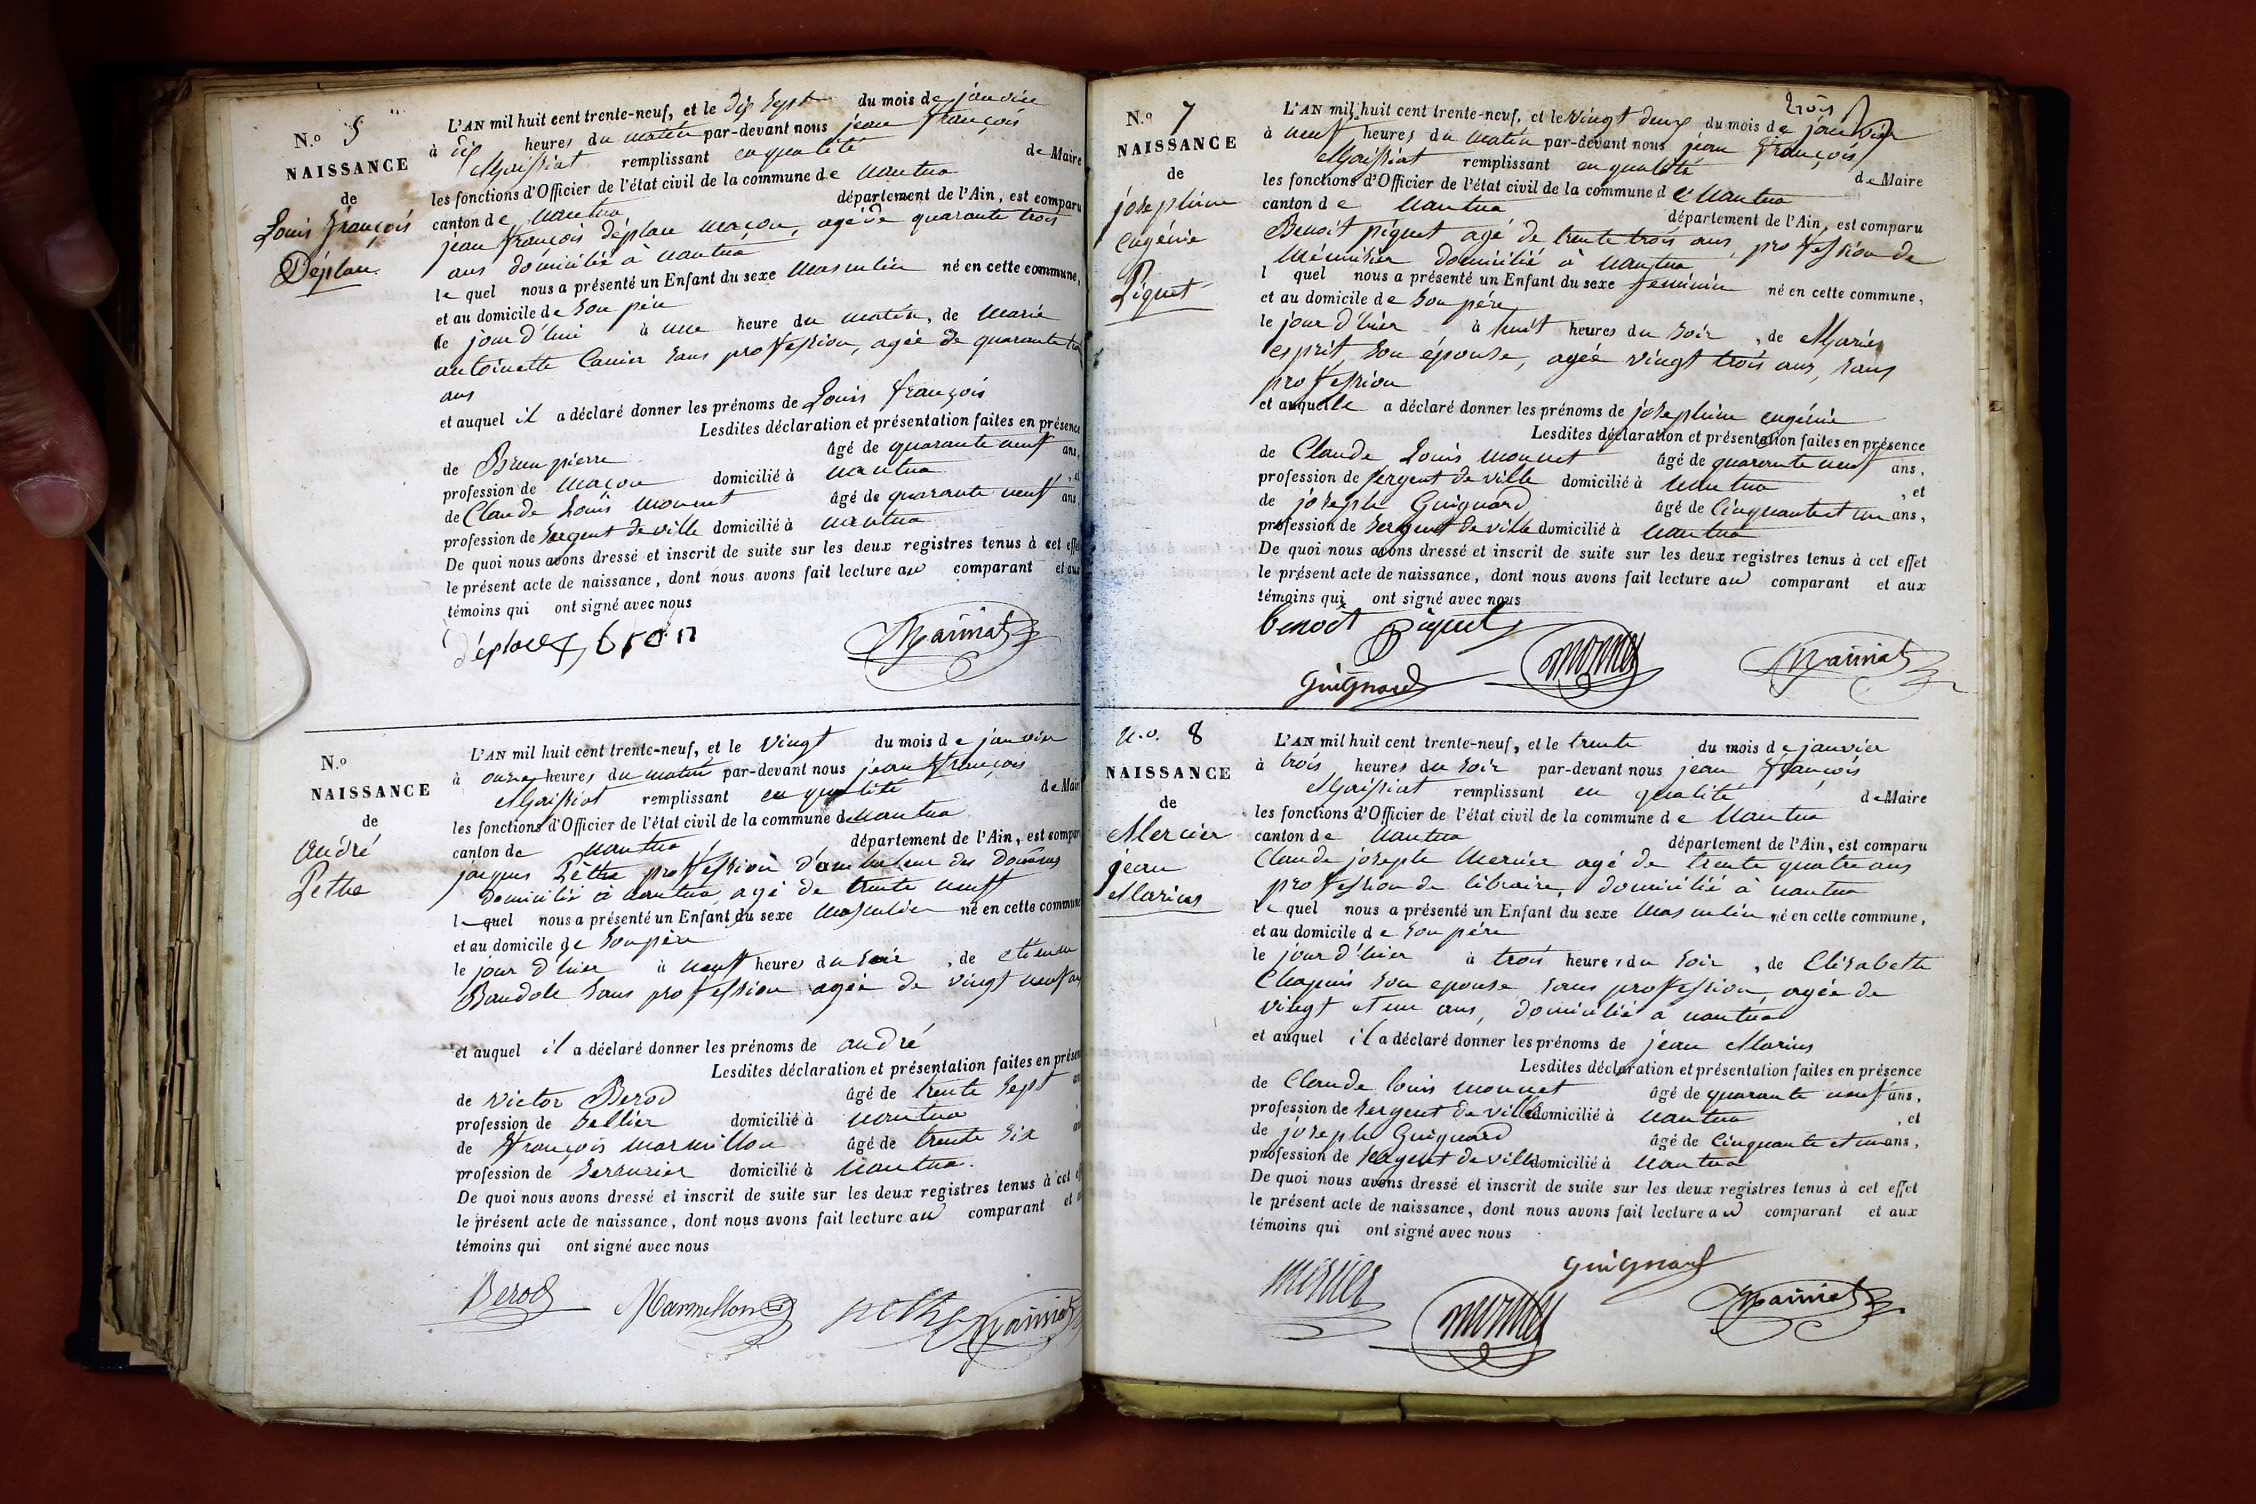 N.o 5
NAISSANCE
de
Louis François
Déplace
L'AN mil huit cent trente-neuf, et le dix sept du mois de janvier
à dix heures du matin par-devant nous jean françois
Maissiat remplissant en qualité de Maire
les fonctions d'Officier de l'état civil de la commune de nantua
canton de nantua département de l'Ain, est comparu
jean françois déplace maçon, agé de quarante trois
ans domicilié à nantua
le quel nous a présenté un Enfant du sexe masculin né en cette commune,
et au domicile de son père
le jour d'hui à une heure du matin, de marie
antoinette sans profession, agée de quarante trois
ans
et auquel il a déclaré donner les prénoms de Louis françois
Lesdites déclaration et présentation faites en présence
de Brun pierre âgé de quarante neuf ans,
profession de maçon domicilié à nantua, et
de Claude Louis monnet âgé de quarante neuf ans
profession de Sergent de ville domicilié à nantua
De quoi nous avons dressé et inscrit de suite sur les deux registres tenus à cet effet
le présent acte de naissance, dont nous avons fait lecture au comparant et aux
témoins qui ont signé avec nous
déplace bron Maissiat
N.o
NAISSANCE
de
andré
Pethe
L'AN mil huit cent trente-neuf, et le vingt du mois de janvier
à onze heures du matin par-devant nous jean françois
Maissiat remplissant en qualité de Maire
les fonctions d'Officier de l'état civil de la commune de nantua
canton de nantua département de l'Ain, est comparu
jacques Pethe profession d'ambulant des Domaines
domicilié à nantua, agé de trente neuf
le quel nous a présenté un Enfant du sexe masculin né en cette commune
et au domicile de son père
le jour d'hier à neuf heures du soir, de etiennette
Baudole sans profession agée de vingt neuf ans
et auquel il a déclaré donner les prénoms de andré
Lesdites déclaration et présentation faites en présence
de victor Berod âgé de trente sept
profession de Sellier domicilié à nantua
de françois marmillon âgé de trente six
profession de Serrurier domicilié à nantua.
De quoi nous avons dressé et inscrit de suite sur les deux registres tenus à cet
le présent acte de naissance, dont nous avons fait lecture au comparant et
témoins qui ont signé avec nous
Berod Marmillon pethe Maissiat
N.o 7
NAISSANCE
de
joséphine
eugénie
Piquet
trois
L'AN mil huit cent trente-neuf, et le vingt deux du mois de janvier
à neuf heures du matin par-devant nous jean françois
Maissiat remplissant en qualité de Maire
les fonctions d'Officier de l'état civil de la commune de nantua
canton de nantua département de l'Ain, est comparu
Benoît piquet agé de trente trois ans, profession de
Ménuisier domicilié à nantua
l quel nous a présenté un Enfant du sexe feminin né en cette commune,
et au domicile de son père
le jour d'hier à huit heures du soir, de Marie
esprit son épouse, agée vingt trois ans, sans
profession
et auquelle a déclaré donner les prénoms de joséphine eugénie
Lesdites déclaration et présentation faites en présence
de Claude Louis monnet âgé de quarante neuf ans,
profession de Sergent de ville domicilié à nantua, et
de joseph Guignard âgé de Cinquante et un ans,
profession de Sergent de ville domicilié à nantua
De quoi nous avons dressé et inscrit de suite sur les deux registres tenus à cet effet
le présent acte de naissance, dont nous avons fait lecture au comparant et aux
témoins qui ont signé avec nous
benoit Piquet
Guignard monnet Maissiat
N.o. 8
NAISSANCE
de
Mercier
jean
Marius
L'AN mil huit cent trente-neuf, et le trente du mois de janvier
à trois heures du soir par-devant nous jean françois
Maissiat remplissant en qualité de Maire
les fonctions d'Officier de l'état civil de la commune de nantua
canton de nantua département de l'Ain, est comparu
Claude joseph Mercier agé de trente quatre ans
profession de libraire, domicilié à nantua
le quel nous a présenté un Enfant du sexe masculin né en cette commune,
et au domicile de son père
le jour d'hier à trois heures du soir, de Elisabeth
Chapuis son epouse sans profession, agée de
vingt et un ans, domiciliée à nantua
et auquel il a déclaré donner les prénoms de jean Marius
Lesdites déclaration et présentation faites en présence
de Claude louis monnet âgé de quarante neuf ans,
profession de Sergent de ville domicilié à nantua, et
de joseph Guignard âgé de Cinquante et un ans,
profession de Sergent de ville domicilié à nantua
De quoi nous avons dressé et inscrit de suite sur les deux registres tenus à cet effet
le présent acte de naissance, dont nous avons fait lecture au comparant et aux
témoins qui ont signé avec nous
mercier Guignard
monnet Maissiat